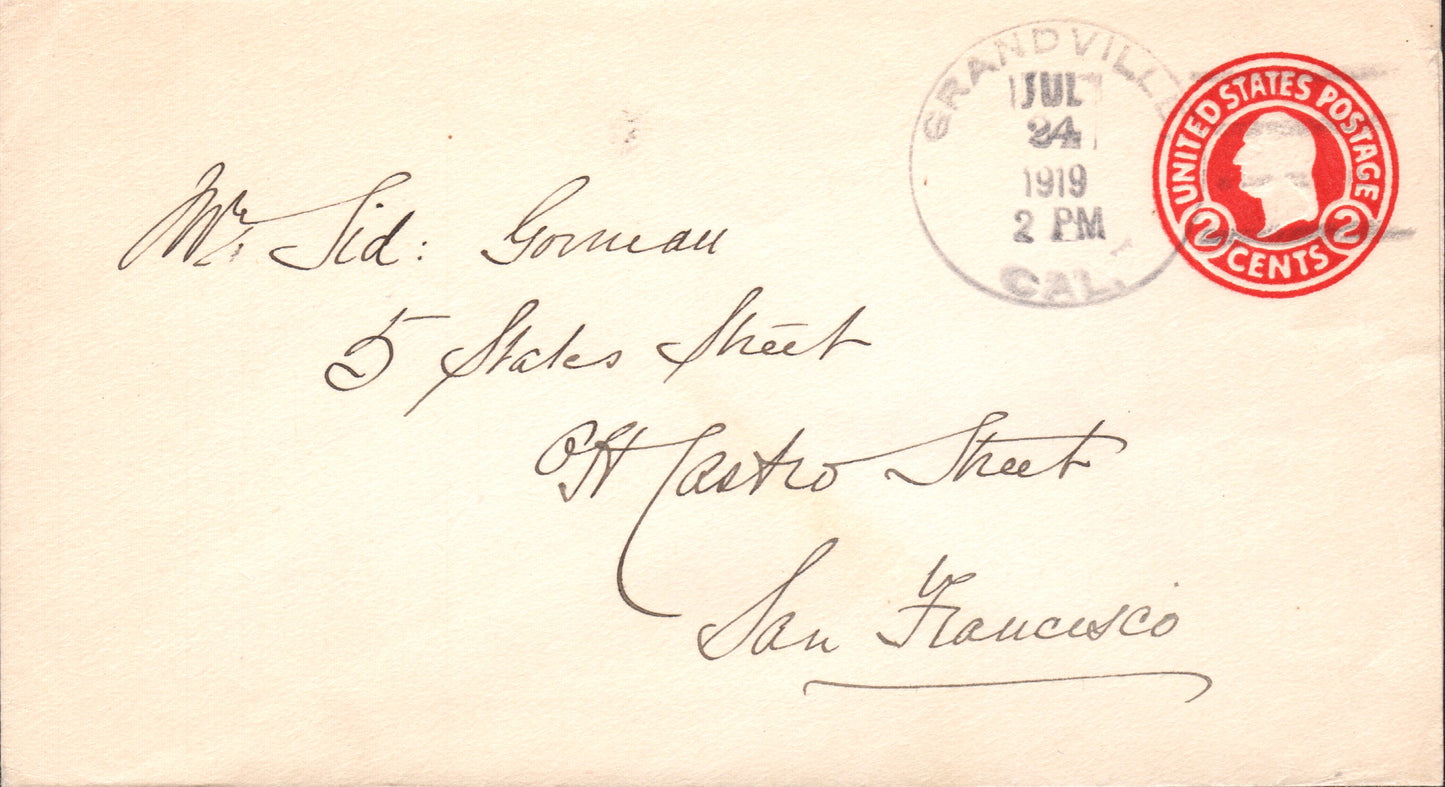 GRANDVILLE
JUL
24
1919
2 PM
CAL.
UNITED STATES POSTAGE
2 CENTS 2
Mr. Sid: Gorman
5 States Street
Off Castro Street
San Francisco